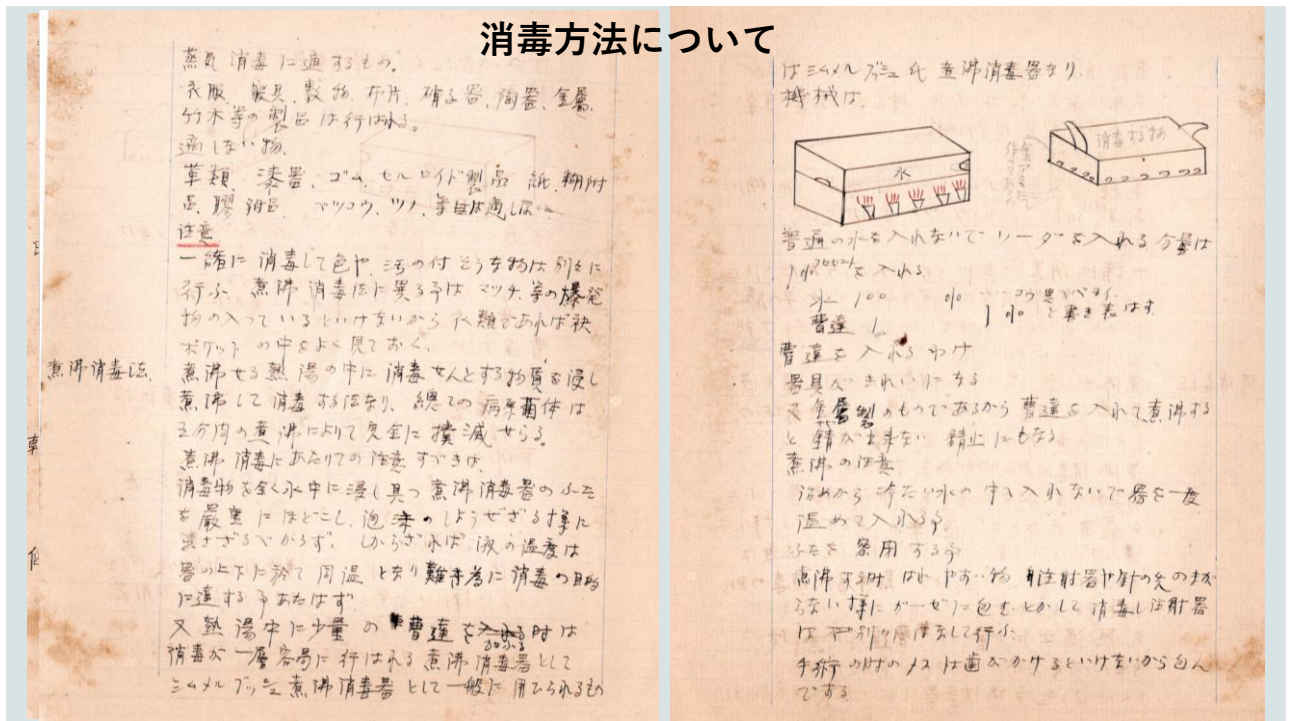 消毒方法について
蒸気消毒に適するもの、
衣服、寝具、敷物、布片、硝子器、陶器、金属、
竹木等の製品は行はれる。
適しない物、
革類、漆器、ゴム セルロイド製品 紙、糊附
品、膠附品、ベツコウ、ツノ、等
注意
一緒に消毒して色や、汚の付そうな物は別々に
行ふ、煮沸消毒法に異る事は マッチ、等の爆発
物の入っているといけないから衣類であれば袂
ポケットの中をよく見ておく、
煮沸消毒法、
煮沸せる熱湯の中に消毒せんとする物質を浸し
煮沸して消毒する法なり、総ての病原菌体は
五分間の煮沸によりて完全に撲滅せらる。
煮沸消毒にあたりての注意すべきは、
消毒物を全く水中に浸し且つ煮沸消毒器のふた
を厳重にほどこし、泡沫のしようぜざる様に
すべからず、しからざれば液の温度は
器の上下に於て同温となり難き為に消毒の目的
に達する事あたはず、
又熱湯中に少量の曹達を入れる時は
加ふる
消毒が一層容易に行はれる煮沸消毒器として
シムメルブッシュ煮沸消毒器として一般に用ひられるもの
はシムメルブッシュ氏煮沸消毒器なり、
機械は
水
消毒する物
金アミで
作ってある
普通の水を入れないでソーダを入れる分量は
1%を入れる
水 100
曹達 1
1% と書き表はす
曹達を入れるわけ
器具がきれいになる
又金属製のものであるから曹達を入れて煮沸する
と錆が出来ない 錆止にもなる
煮沸の注意
始めから冷たい水の中へ入れないで器を一度
温めて入れる事
ふたを用する事
煮沸する時はわれやすい物、注射器や針の先のまが
らない様にガーゼに包むとかして消毒し注射器
は別々にはなして行ふ
手術の時のメスは歯がかけるといけないから包ん
でする